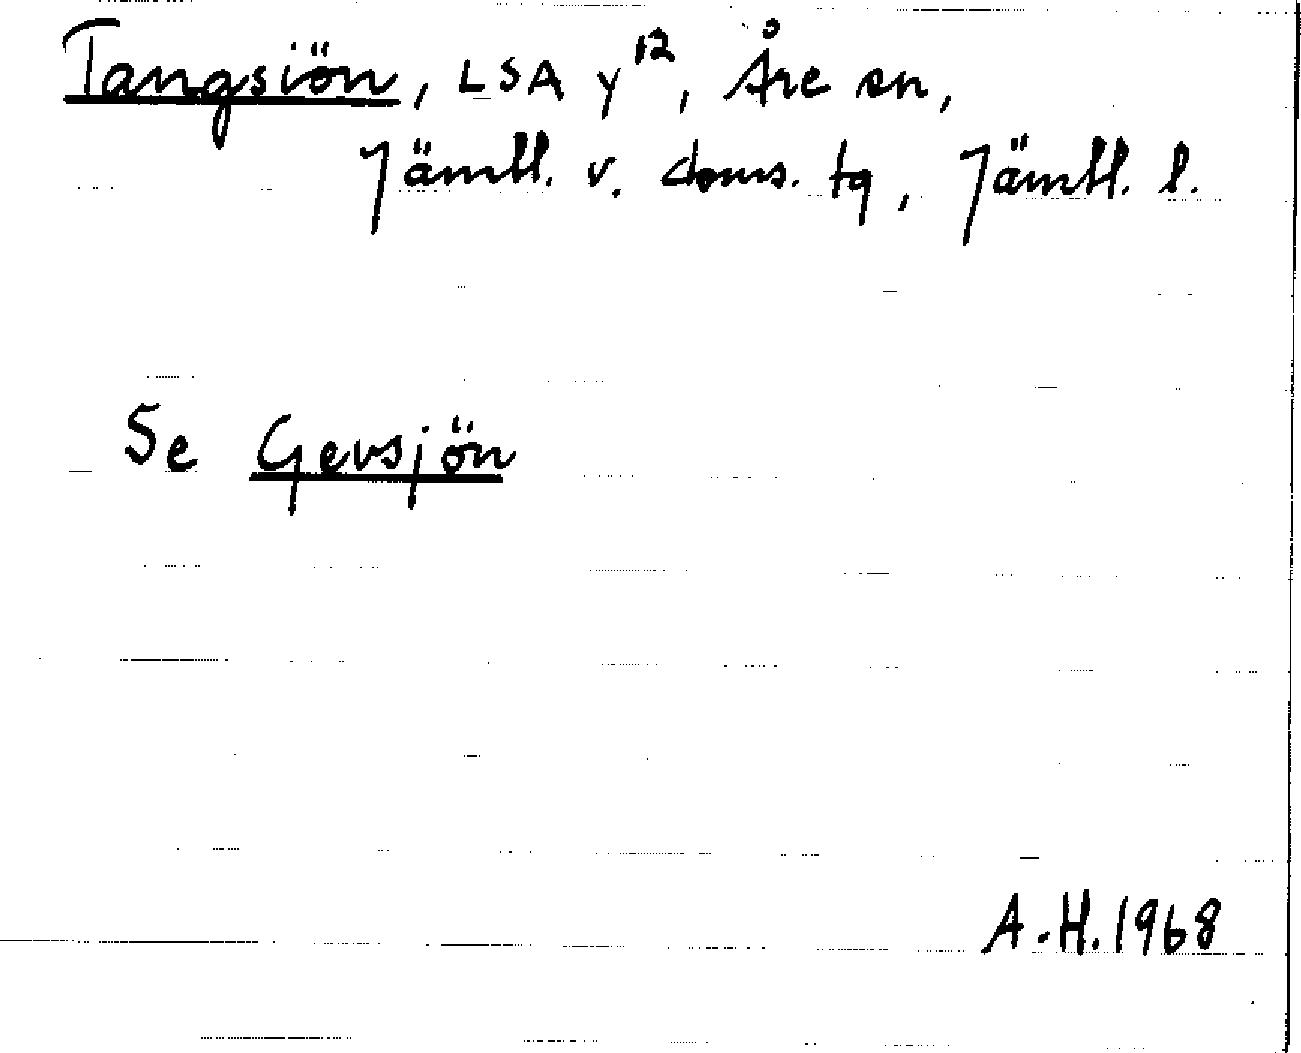 Tangsiön, LSA y¹², Åre sn,
Jämtl. v. doms. tg, Jämtl. l.
Se Gevsjön
A.H. 1968